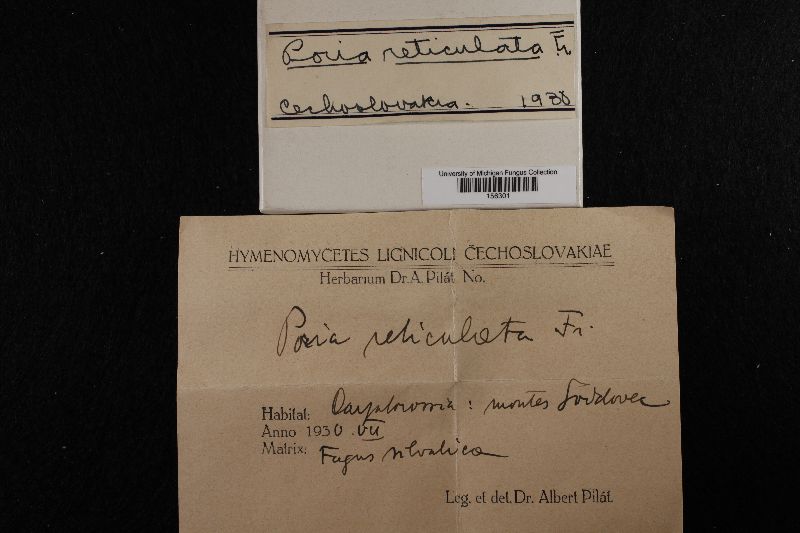 Poria reticulata Fr.
Cechoslovakia. 1930
University of Michigan Fungus Collection
156301
HYMENOMYCETES LIGNICOLI ČECHOSLOVAKIAE
Herbarium Dr. A. Pilát No.
Poria reticulata Fr.
Habitat: Carpatorossia : montes Svidovec
Anno 1930. VII
Matrix: Fagus silvatica
Leg. et det. Dr. Albert Pilát.